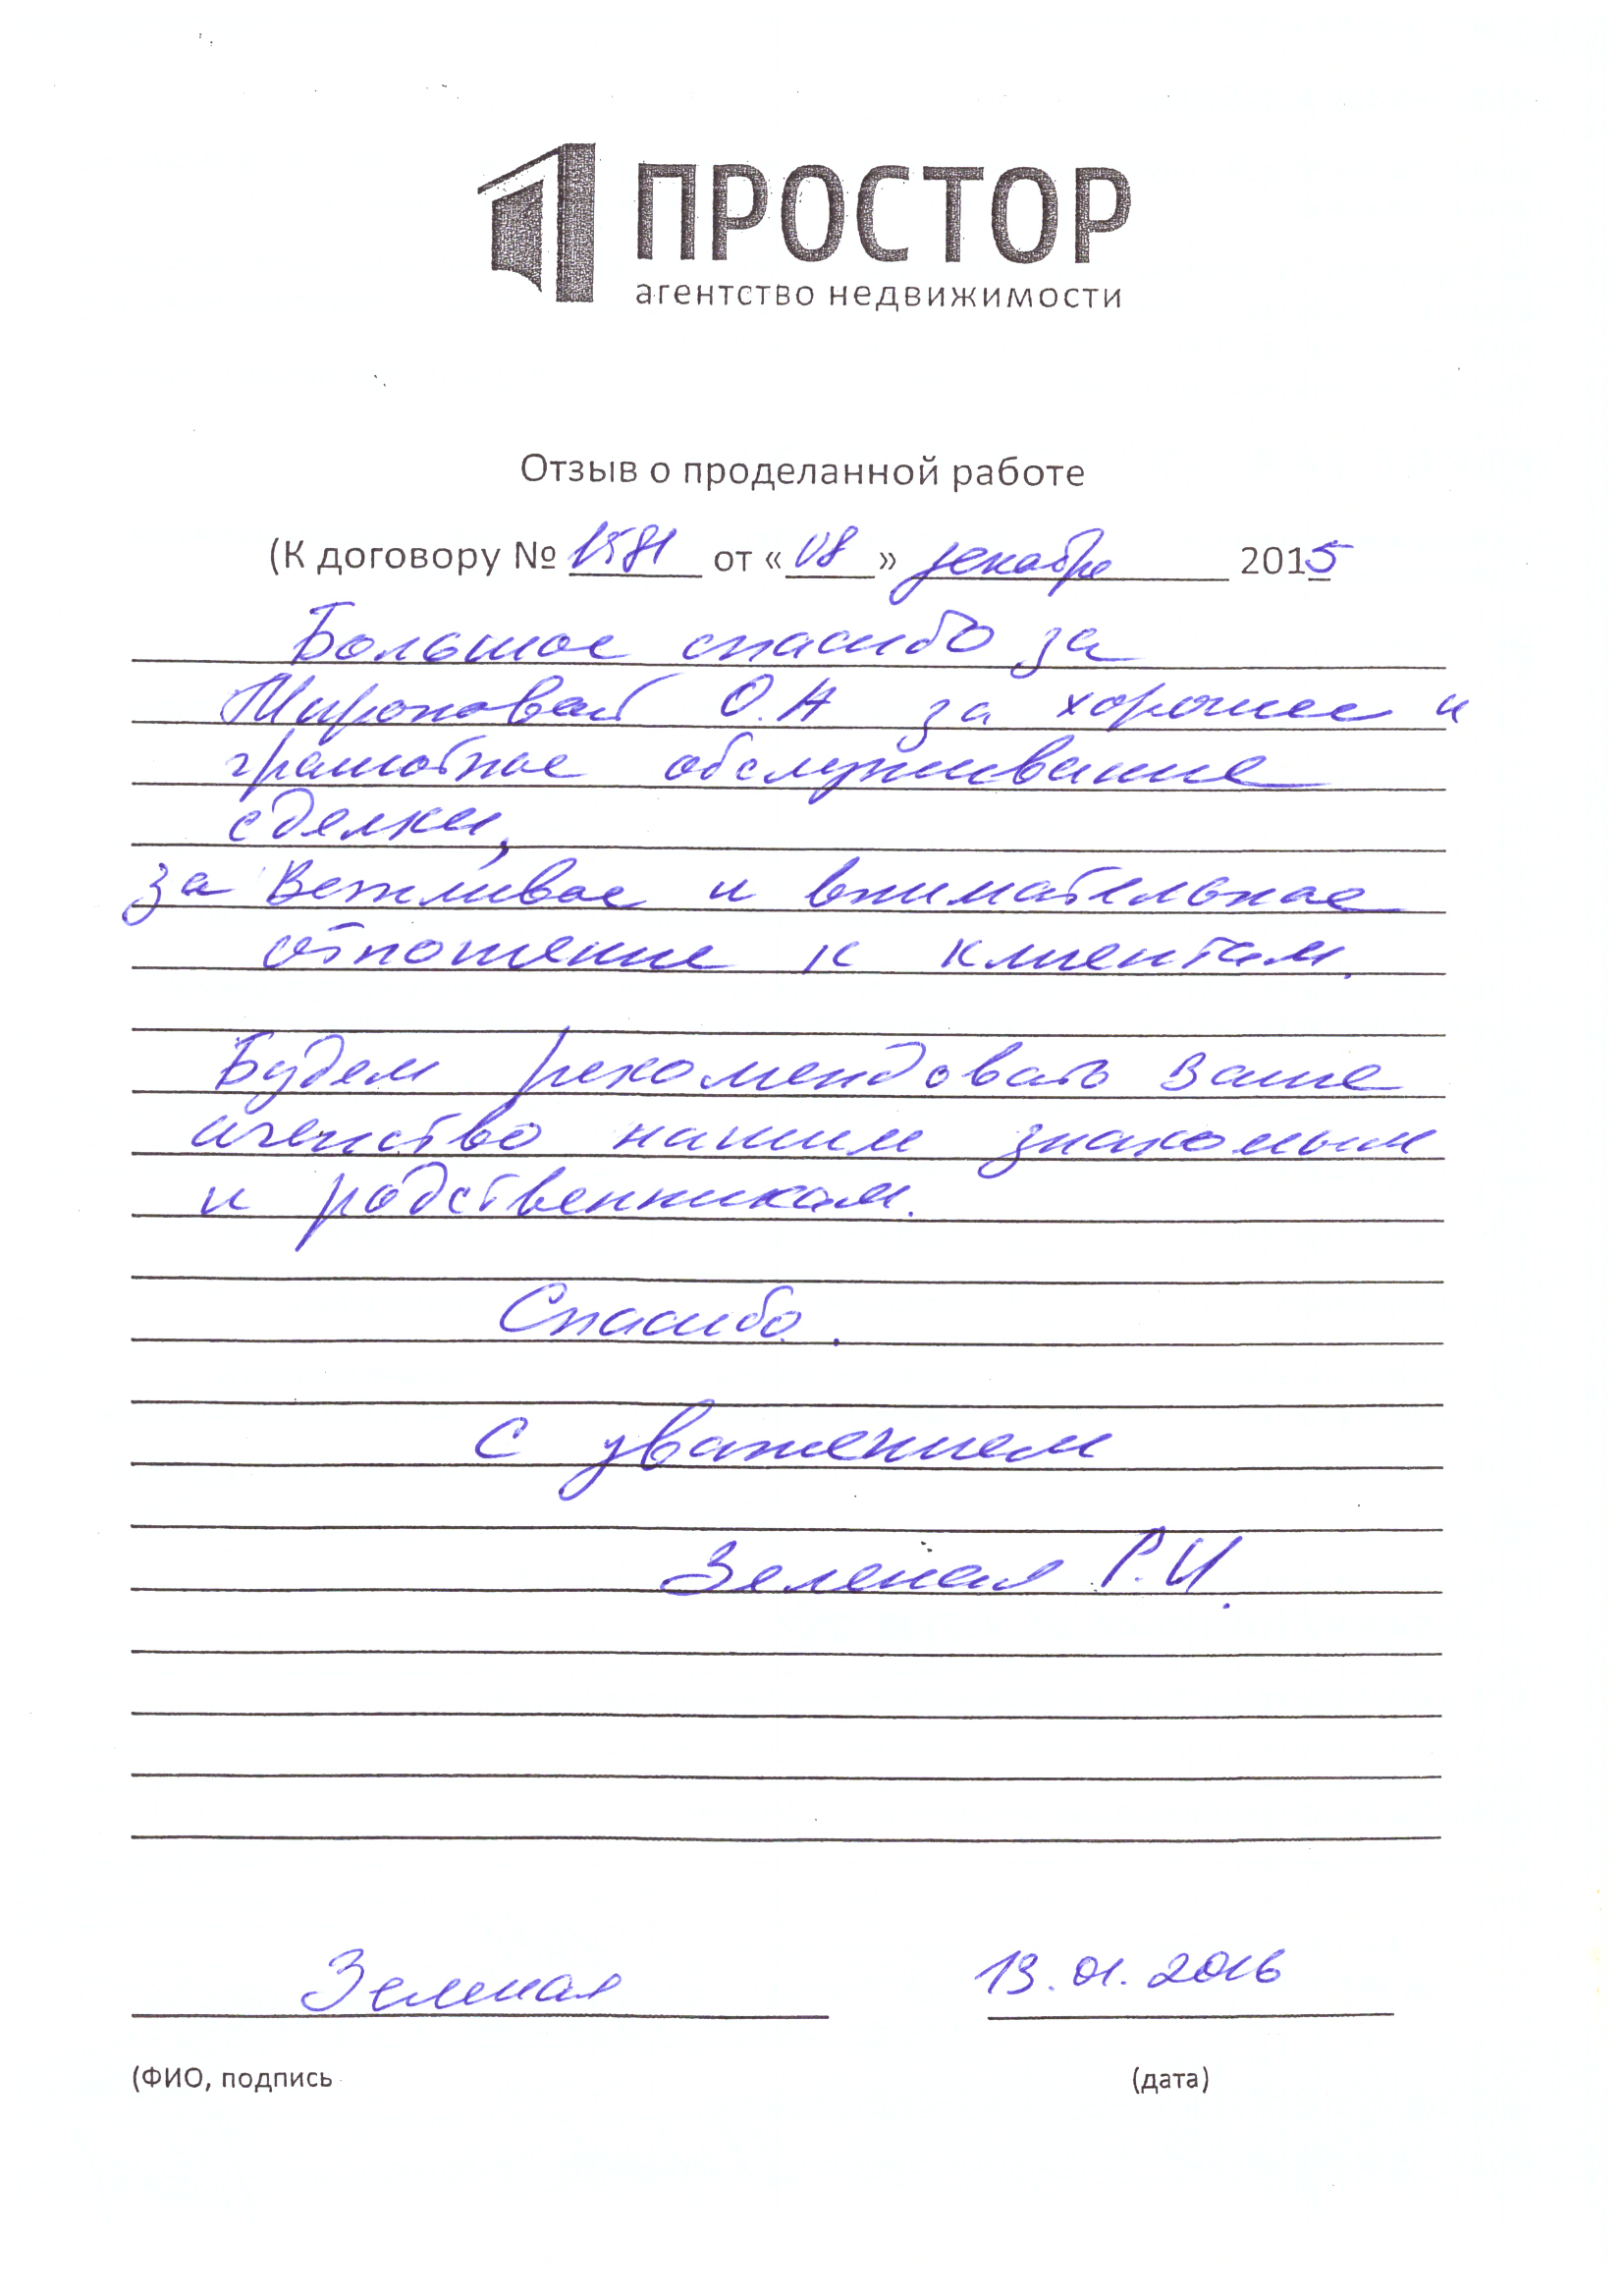 ПРОСТОР
агентство недвижимости
Отзыв о проделанной работе
(К договору № 1581 от «08» декабря 2015
Большое спасибо за
Мироновой О.А за хорошее и
грамотное обслуживание
сделки,
за вежливое и внимательное
отношение к клиентам.
Будем рекомендовать Ваше
агенство нашим знакомым
и родственникам.
Спасибо.
С уважением
Зеленая Р.И.
Зеленая 13.01.2016
(ФИО, подпись (дата)